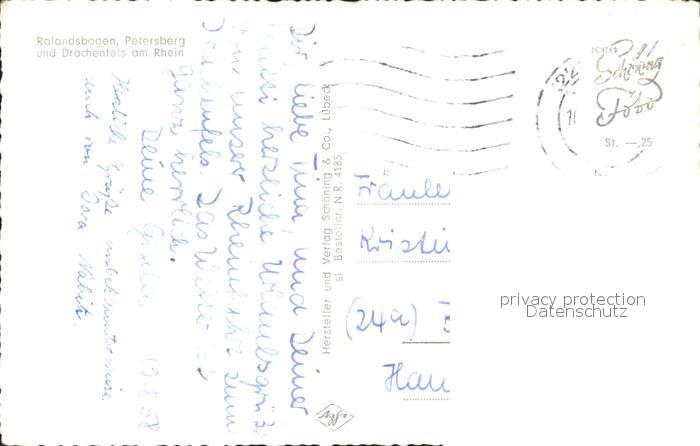 Rolandsbogen, Petersberg
und Drachenfels am Rhein
Dir, liebe Tina, und Deiner
Mutti herzliche Urlaubsgrüße
von unser Rheinfahrt zum
Drachenfels. Das Wetter ist
ganz herrlich.
Deine
Herzliche Grüße unbekannterweise
auch von
Hersteller und Verlag Schöning & Co., Lübeck
sl Bestellnr. N.R. 4185
Agfa
ECHTES
Schöning
Foto
St. —,25
Fräule
Kristi
(24a)
Han
privacy protection
Datenschutz